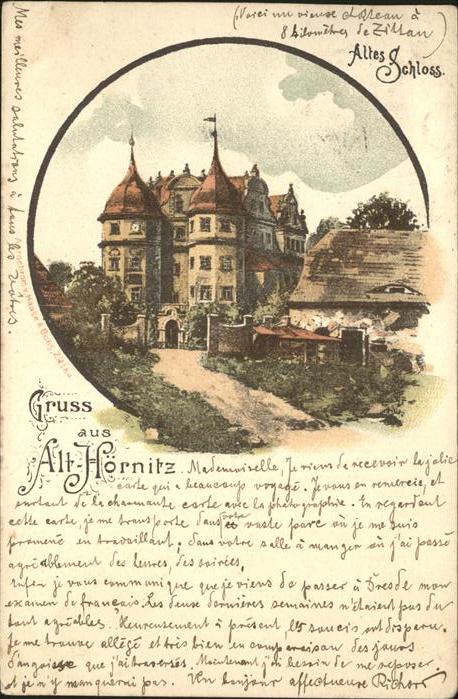 (Voici un vieux château à
8 kilomètres de Zittau)
Altes
Schloss.
Mes meilleures salutations à tous les vôtres.
Gruss
aus
Alt-Hörnitz
Mademoiselle, Je viens de recevoir la jolie
carte qui a beaucoup voyagé. Je vous en remercie, et
surtout de la charmante carte avec la photographie. En regardant
cette carte, je me transporte dans votre vaste parc où je me suis
promené en travaillant, dans votre salle à manger où j'ai passé
agréablement des heures, des soirées.
Enfin je vous communique que je viens de passer à Dresde mon
examen de français. Les deux dernières semaines n'étaient pas du
tout agréables. Heureusement à présent, les soucis ont disparu.
Je me trouve allégé et très bien en comparaison des jours
d'angoisse que j'ai traversés. Maintenant j'ai besoin de me reposer
et je n'y manquerai pas. Un bonjour affectueux Richard